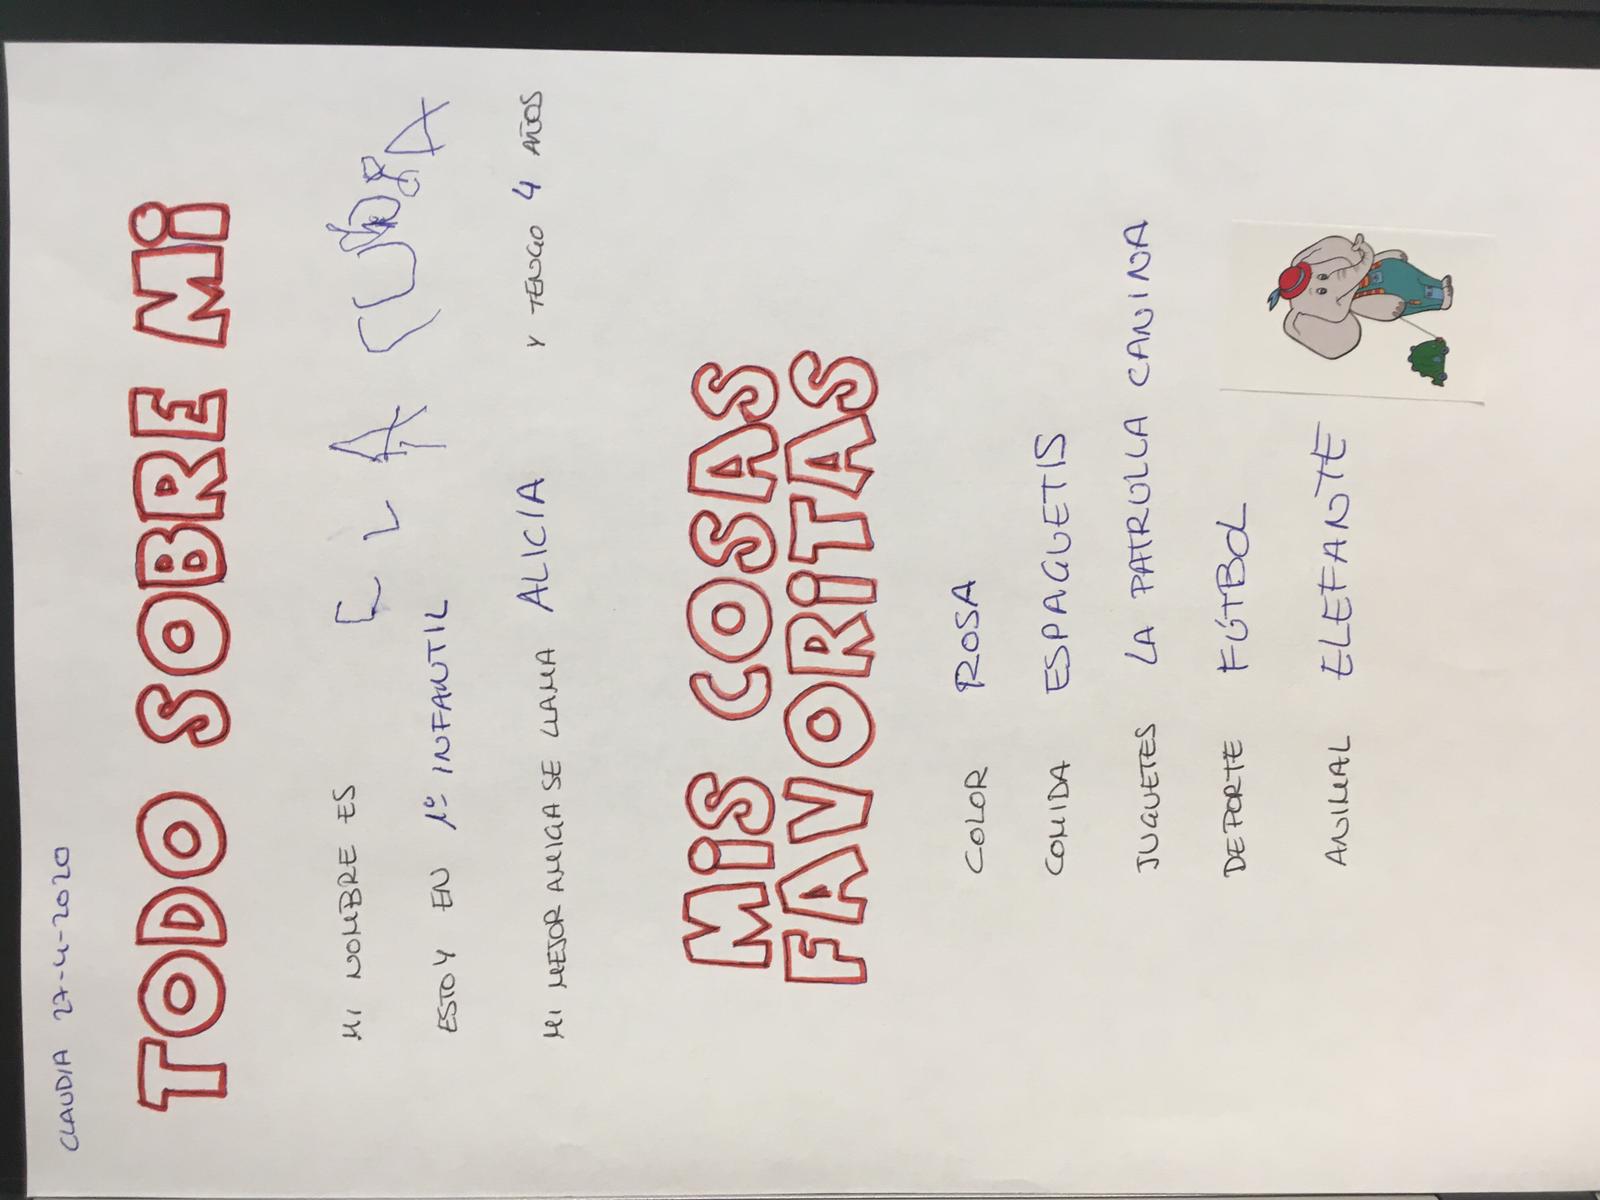 CLAUDIA 27-4-2020
TODO SOBRE Mi
MI NOMBRE ES CLAUDIA
ESTOY EN 1º INFANTIL
MI MEJOR AMIGA SE LLAMA ALICIA Y TENGO 4 AÑOS
MiS COSAS
FAVORiTAS
COLOR ROSA
COMIDA ESPAGUETIS
JUGUETES LA PATRULLA CANINA
DEPORTE FÚTBOL
ANIMAL ELEFANTE